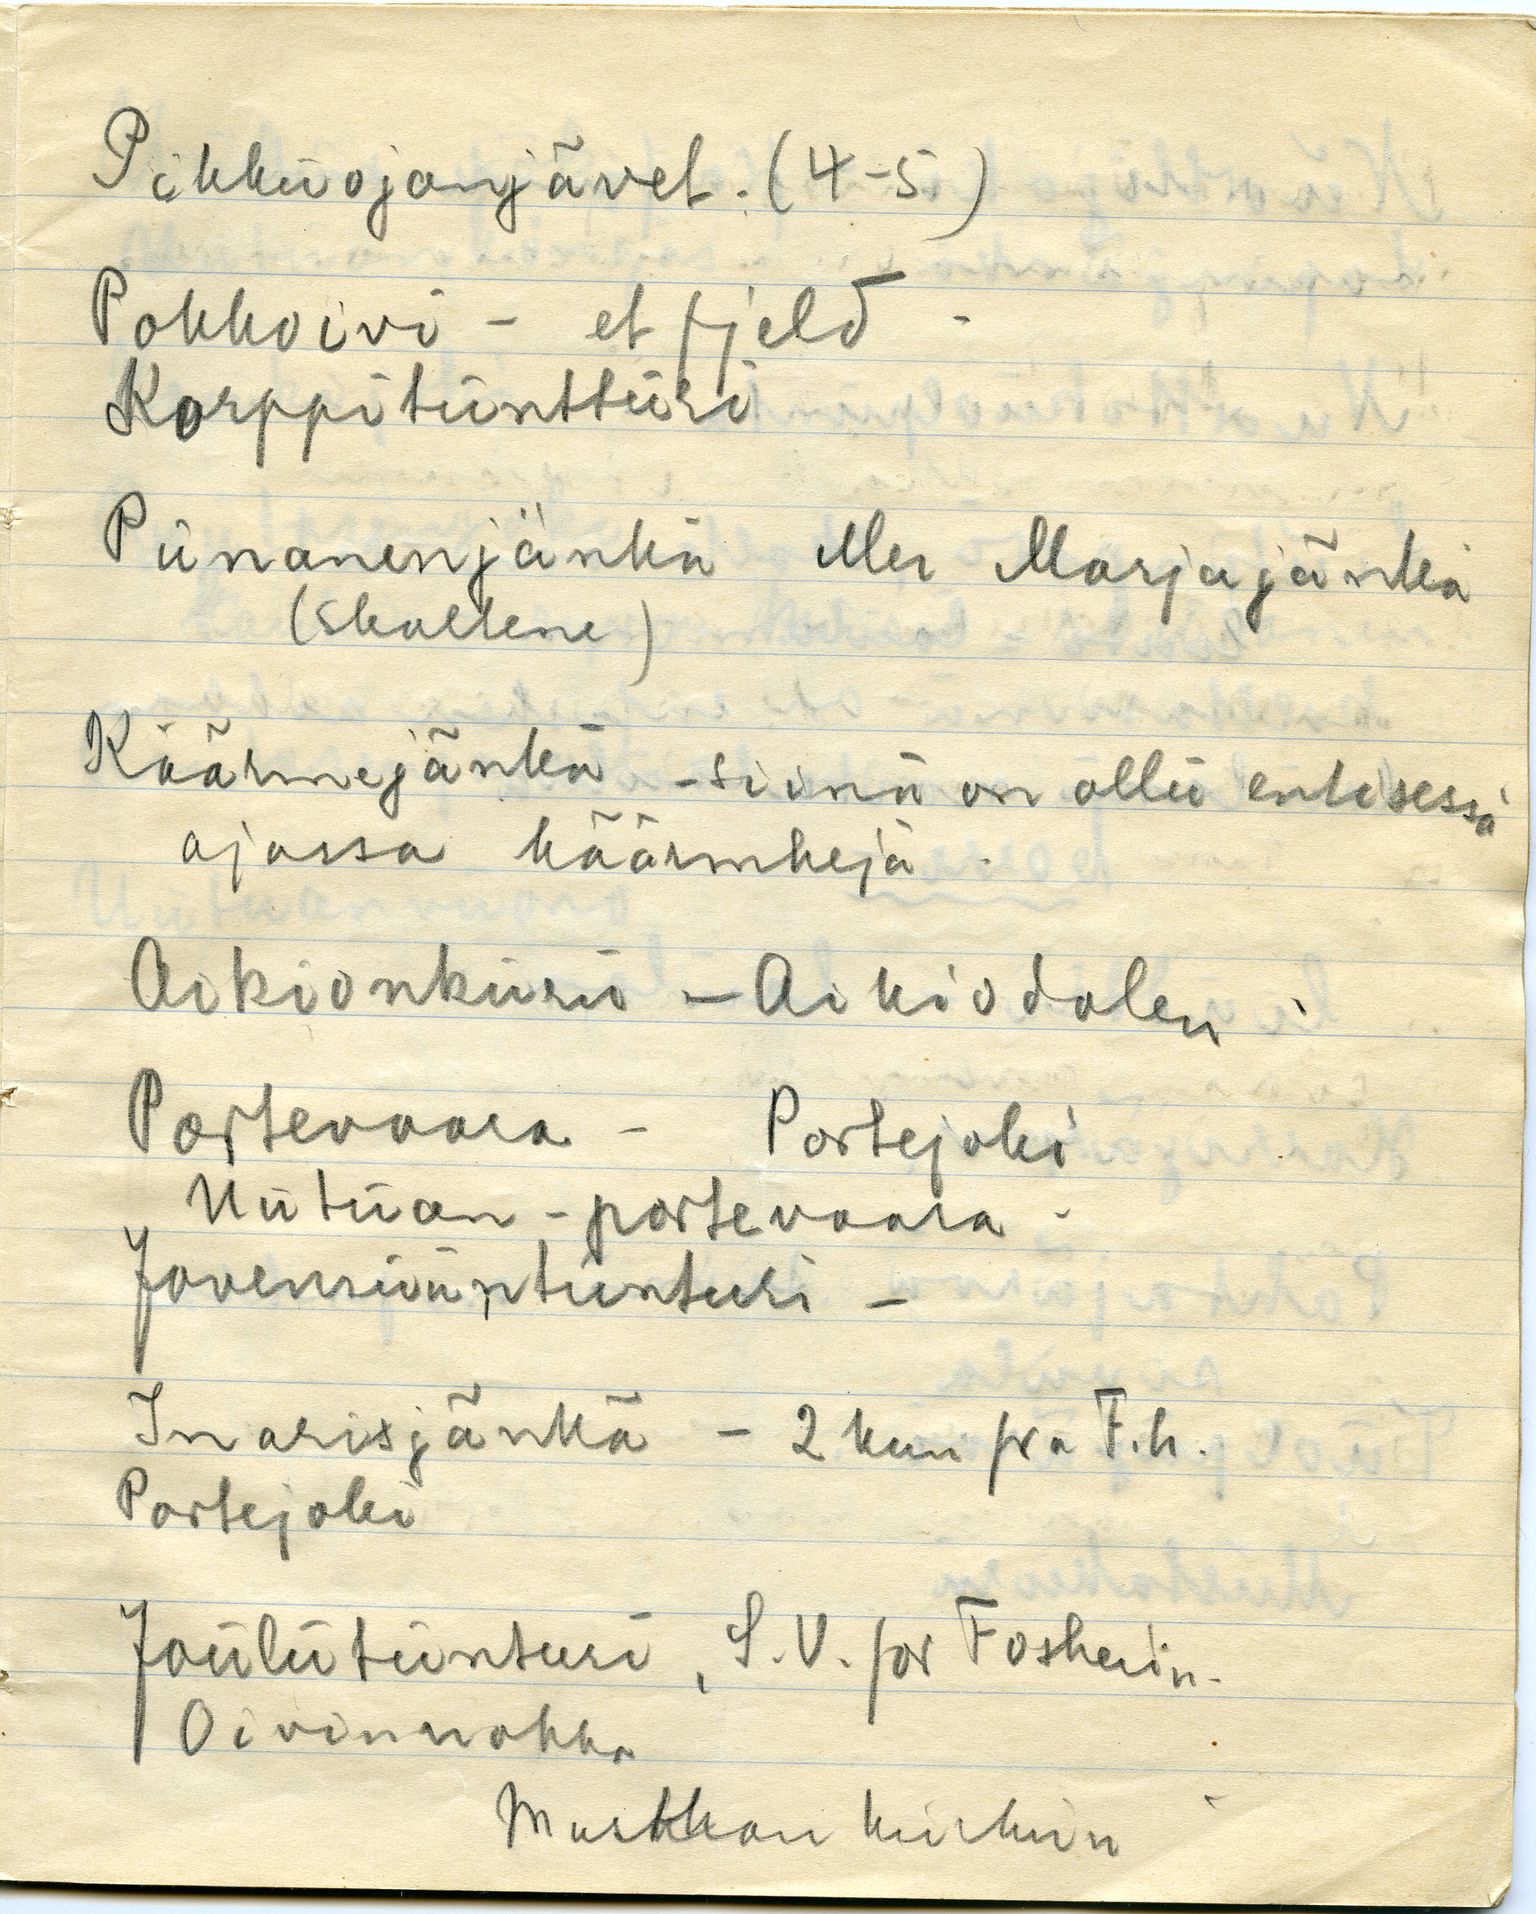 Pikkuojanjävet. (4-5)
Pokkoivi - et fjeld -
Korppituntturi
Punanenjänkä eller Marjajänkä
(Skoltene)
Käärmejänkä - siinä on ollu entisessä
ajassa käärmhejä -
Aikionkuru - Aikiodalen
Portevaara - Portejoki
Uutuan - portevaara -
Jovensuuntunturi -
Inarisjänkä - 2 km fra F.h.
Portejoki
Joulutunturi, S.V. for Fosheim.
Oivinnokka